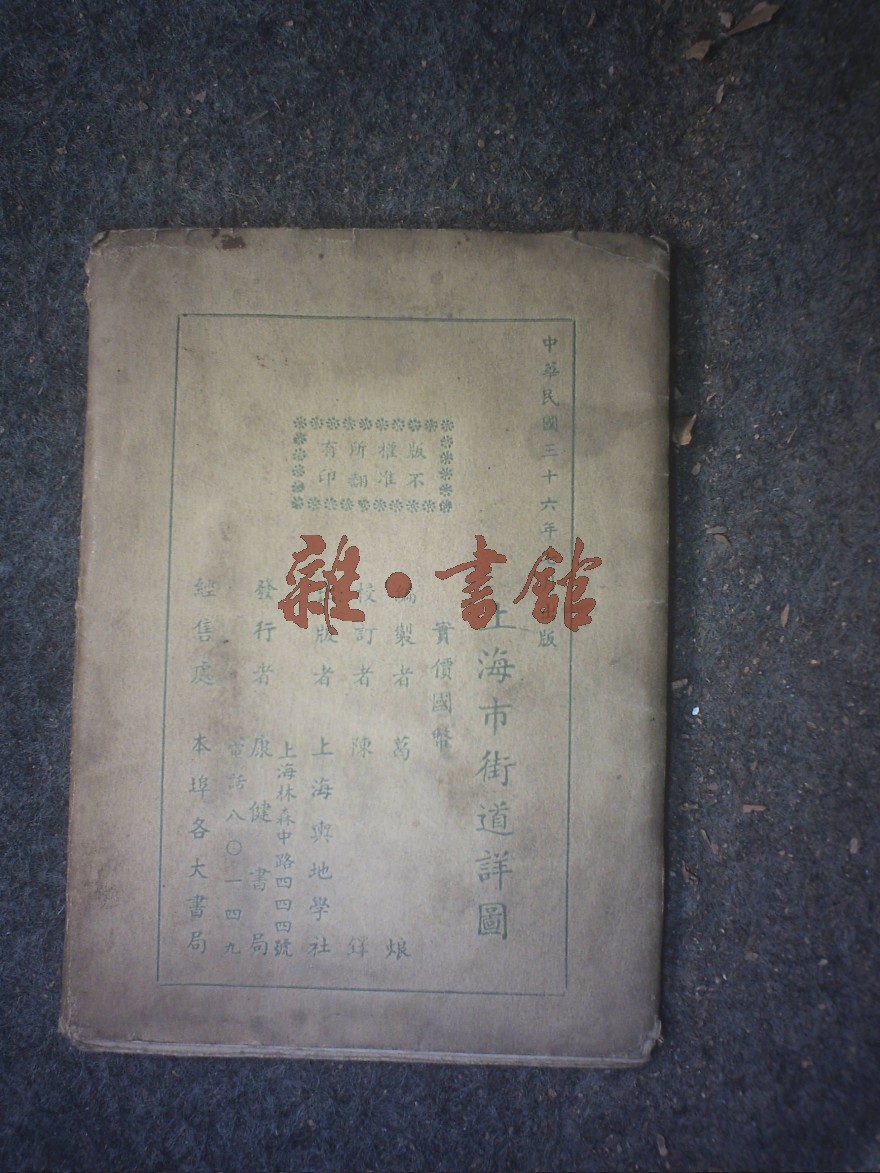 中華民國三十六年 版
上海市街道詳圖
實價國幣
編製者 葛 烺
校訂者 陳 鐸
版者 上海輿地學社
上海林森中路四四四號
發行者 康健書局
電話八〇一四九
經售處 本埠各大書局
版權所有
不准翻印
雜·書館